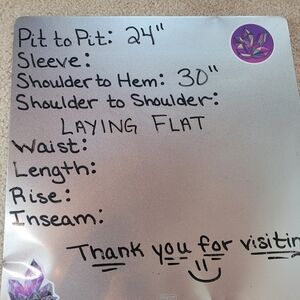 Pit to Pit: 24"
Sleeve:
Shoulder to Hem: 30"
Shoulder to Shoulder:
LAYING FLAT
Waist:
Length:
Rise:
Inseam:
Thank you for visitin